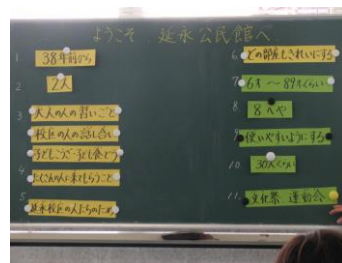 ようこそ 延永公民館へ
1 38年前から
2 2人
3 大人の人の習いごと
校区の人の話し合い
子どもこうざ・子ども食どう
4 たくさんの人に来てもらうこと
5 延永校区の人たちのため
6 どの部屋もきれいにする
7 6才〜89才くらい
8 8へや
9 使いやすいようにする
10 30人くらい
11 文化祭、運動会